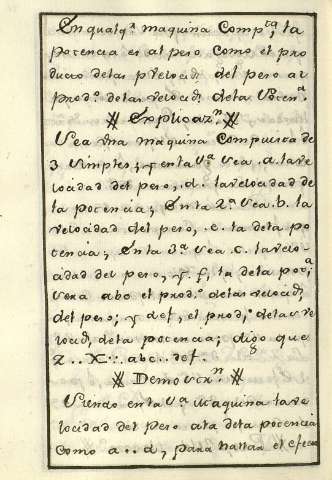 En qualq.ª maquina Comp.ta, la
potencia es al peso, como el pro
ducto delas velocid.s del peso al
prod.º delas velocid.s dela Poten.ª
// Explicaz.n //
Sea Vna maquina Compuesta de
3 simples, y enla 1.ª sea .a. la ve
locidad del peso, .d. la velocidad de
la potencia; Enla 2.ª sea .b. la
velocidad del peso, .e. la dela po
tencia; Enla 3.ª sea .c. la velo-
cidad del peso, y .f. la dela pot.ª;
sera abc el prod.º delas velocid.s
del peso; y def, el prod.º delas ve
locid.s dela potencia; digo que
Z..X::abc..def.
// Demostr.n //
Siendo enla 1.ª Maquina la ve
locidad del peso ala dela potencia
como a..d, para hallar el efecto